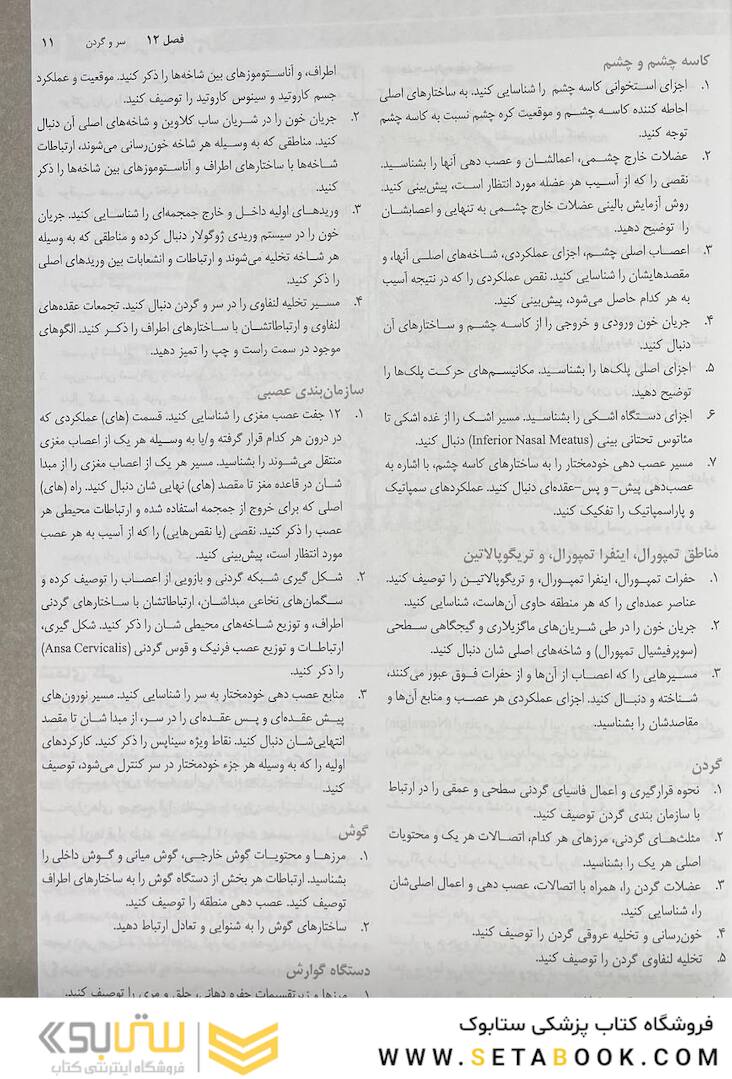 فصل ۱۲ سر و گردن ۱۱
کاسه چشم و چشم
۱. اجزای استخوانی کاسه چشم را شناسایی کنید. به ساختارهای اصلی
احاطه کننده کاسه چشم و موقعیت کره چشم نسبت به کاسه چشم
توجه کنید.
۲. عضلات خارج چشمی، اعمالشان و عصب دهی آنها را بشناسید.
نقصی را که از آسیب هر عضله مورد انتظار است، پیش‌بینی کنید.
روش آزمایش بالینی عضلات خارج چشمی به تنهایی و اعصابشان
را توضیح دهید.
۳. اعصاب اصلی چشم، اجزای عملکردی، شاخه‌های اصلی آنها، و
مقصدهایشان را شناسایی کنید. نقص عملکردی را که در نتیجه آسیب
به هر کدام حاصل می‌شود، پیش‌بینی کنید.
۴. جریان خون ورودی و خروجی را از کاسه چشم و ساختارهای آن
دنبال کنید.
۵. اجزای اصلی پلک‌ها را بشناسید. مکانیسم‌های حرکت پلک‌ها را
توضیح دهید.
۶. اجزای دستگاه اشکی را بشناسید. مسیر اشک را از غده اشکی تا
مئاتوس تحتانی بینی (Inferior Nasal Meatus) دنبال کنید.
۷. مسیر عصب دهی خودمختار را به ساختارهای کاسه چشم، با اشاره به
عصب‌دهی پیش- و پس-عقده‌ای دنبال کنید. عملکردهای سمپاتیک
و پاراسمپاتیک را تفکیک کنید.
مناطق تمپورال، اینفرا تمپورال، و تریگوپالاتین
۱. حفرات تمپورال، اینفرا تمپورال، و تریگوپالاتین را توصیف کنید.
عناصر عمده‌ای را که هر منطقه حاوی آن‌هاست، شناسایی کنید.
۲. جریان خون را در طی شریان‌های ماگزیلاری و گیجگاهی سطحی
(سوپرفیشیال تمپورال) و شاخه‌های اصلی شان دنبال کنید.
۳. مسیرهایی را که اعصاب از آن‌ها و از حفرات فوق عبور می‌کنند،
شناخته و دنبال کنید. اجزای عملکردی هر عصب و منابع آن‌ها و
مقاصدشان را بشناسید.
گردن
۱. نحوه قرارگیری و اعمال فاسیای گردنی سطحی و عمقی را در ارتباط
با سازمان بندی گردن توصیف کنید.
۲. مثلث‌های گردنی، مرزهای هر کدام، اتصالات هر یک و محتویات
اصلی هر یک را بشناسید.
۳. عضلات گردن را، همراه با اتصالات، عصب دهی و اعمال اصلی‌شان
را، شناسایی کنید.
۴. خون‌رسانی و تخلیه عروقی گردن را توصیف کنید.
۵. تخلیه لنفاوی گردن را توصیف کنید.
اطراف، و آناستوموزهای بین شاخه‌ها را ذکر کنید. موقعیت و عملکرد
جسم کاروتید و سینوس کاروتید را توصیف کنید.
۲. جریان خون را در شریان ساب کلاوین و شاخه‌های اصلی آن دنبال
کنید. مناطقی که به وسیله هر شاخه خون‌رسانی می‌شوند، ارتباطات
شاخه‌ها با ساختارهای اطراف و آناستوموزهای بین شاخه‌ها را ذکر
کنید.
۳. وریدهای اولیه داخل و خارج جمجمه‌ای را شناسایی کنید. جریان
خون را در سیستم وریدی ژوگولار دنبال کرده و مناطقی که به وسیله
هر شاخه تخلیه می‌شوند و ارتباطات و انشعابات بین وریدهای اصلی
را ذکر کنید.
۴. مسیر تخلیه لنفاوی را در سر و گردن دنبال کنید. تجمعات عقده‌های
لنفاوی و ارتباطاتشان با ساختارهای اطراف را ذکر کنید. الگوهای
موجود در سمت راست و چپ را تمیز دهید.
سازمان‌بندی عصبی
۱. ۱۲ جفت عصب مغزی را شناسایی کنید. قسمت (های) عملکردی که
در درون هر کدام قرار گرفته و/یا به وسیله هر یک از اعصاب مغزی
منتقل می‌شوند را بشناسید. مسیر هر یک از اعصاب مغزی را از مبدا
شان در قاعده مغز تا مقصد (های) نهایی شان دنبال کنید. راه (های)
اصلی که برای خروج از جمجمه استفاده شده و ارتباطات محیطی هر
عصب را ذکر کنید. نقصی (یا نقص‌هایی) را که از آسیب به هر عصب
مورد انتظار است، پیش‌بینی کنید.
۲. شکل گیری شبکه گردنی و بازویی از اعصاب را توصیف کرده و
سگمان‌های نخاعی مبداشان، ارتباطاتشان با ساختارهای گردنی
اطراف، و توزیع شاخه‌های محیطی شان را ذکر کنید. شکل گیری،
ارتباطات و توزیع عصب فرنیک و قوس گردنی (Ansa Cervicalis)
را ذکر کنید.
۳. منابع عصب دهی خودمختار به سر را شناسایی کنید. مسیر نورون‌های
پیش عقده‌ای و پس عقده‌ای را در سر، از مبدا شان تا مقصد
انتهایی‌شان دنبال کنید. نقاط ویژه سیناپس را ذکر کنید. کارکردهای
اولیه را که به وسیله هر جزء خودمختار در سر کنترل می‌شود، توصیف
کنید.
گوش
۱. مرزها و محتویات گوش خارجی، گوش میانی و گوش داخلی را
بشناسید. ارتباطات هر بخش از دستگاه گوش را به ساختارهای اطراف
توصیف کنید. عصب دهی منطقه را توصیف کنید.
۲. ساختارهای گوش را به شنوایی و تعادل ارتباط دهید.
دستگاه گوارش
۱. مرزها و زیرتقسیمات حفره دهانی، حلق و مری را توصیف کنید.
فروشگاه کتاب پزشکی ستابوک
WWW.SETABOOK.COM
ستابوک
فروشگاه اینترنتی کتاب